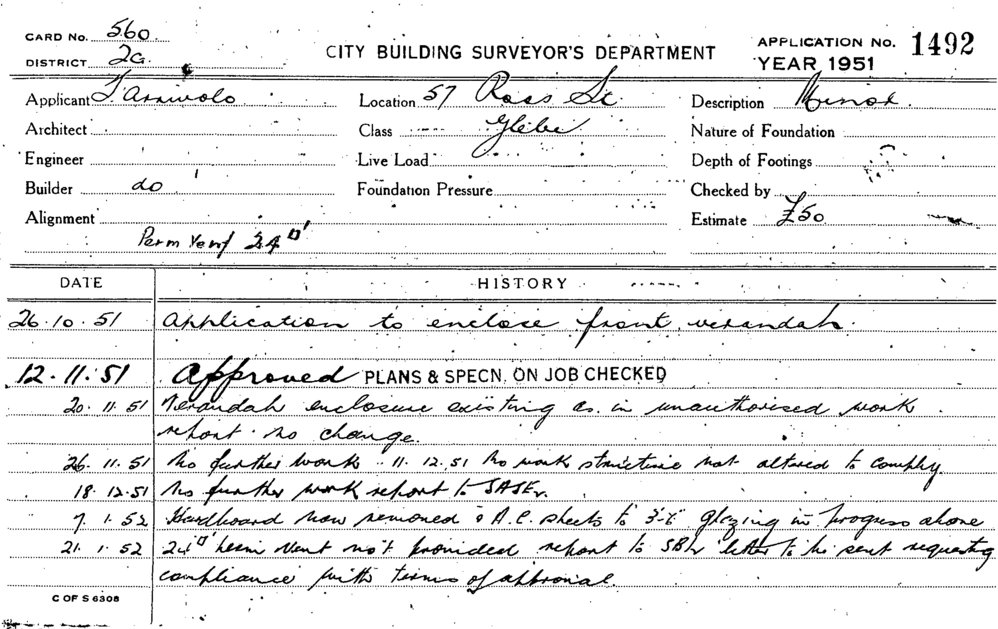 CARD No. 560
DISTRICT 2G
CITY BUILDING SURVEYOR'S DEPARTMENT
APPLICATION No. 1492
YEAR 1951
Applicant
Location 57 Ross St.
Description Minor
Architect
Class Glebe
Nature of Foundation
Engineer
Live Load
Depth of Footings
Builder do
Foundation Pressure
Checked by
Alignment
Estimate £50
Perm Vent 24□'
DATE HISTORY
26.10.51 Application to enclose front verandah.
12.11.51 Approved PLANS & SPECN. ON JOB CHECKED
20.11.51 Verandah enclosure existing as in unauthorised work
report. no change.
26.11.51 No further work. 11.12.51 No work structure not altered to comply.
18.12.51 No further work report to
7.1.52 Hardboard now removed & A.C. sheets to 3'6" glazing in progress above
21.1.52 24□" Perm Vent not provided report to letter to be sent requesting
compliance with terms of approval
C OF S 6308